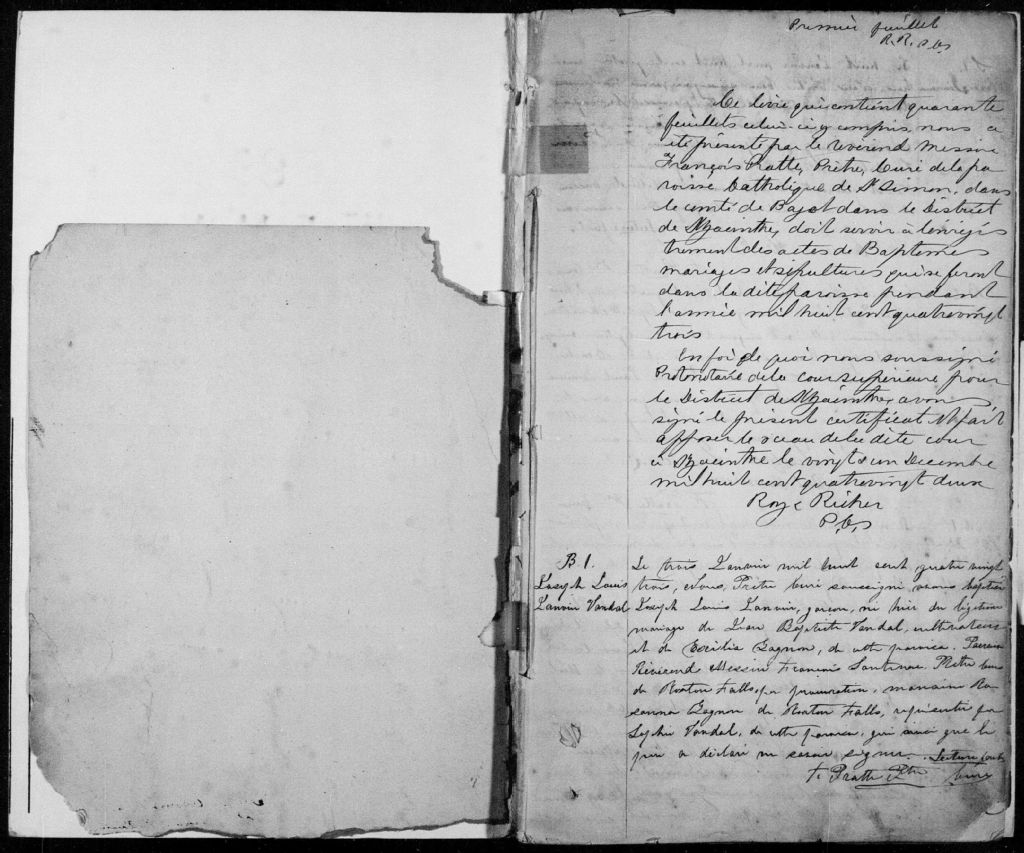 Premier feuillet
R. R. P.C.S.
Ce livre qui contient quarante
feuillets celui-ci y compris, nous a
été présenté par le révérend Messire
François Pratte, Prêtre, Curé de la pa
roisse Catholique de St Simon, dans
le comté de Bagot dans le District
de St Hyacinthe, doit servir à l'enrégis
trement des actes de Baptêmes
mariages et sépultures qui se feront
dans la dite paroisse pendant
l'année mil huit cent quatrevingt
trois
En foi de quoi nous soussigné
Protonotaire de la cour supérieure pour
le District de St Hyacinthe, avons
signé le présent certificat et fait
apposer le sceau de la dite cour
à St Hyacinthe le vingt un Decembre
mil huit cent quatrevingt deux
Roy & Richer
P.C.S.
B. 1.
Joseph Louis
Janvier Vandal
Le trois Janvier mil huit cent quatre vingt
trois, Nous, Prêtre curé soussigné avons baptisé
Joseph Louis Janvier, garçon, né hier du légitime
mariage de Jean Baptiste Vandal, cultivateur
et de Exilia Gagnon, de cette paroisse, Parrain
Révérend Messire François Prêtre curé
de Roxton Falls, par procuration, marraine Ro
sanna Gagnon de Roxton Falls, représentée par
Sophie Vandal, de cette paroisse, qui ainsi que le
père a déclaré ne savoir signer. Lecture faite
F. Pratte Ptre curé